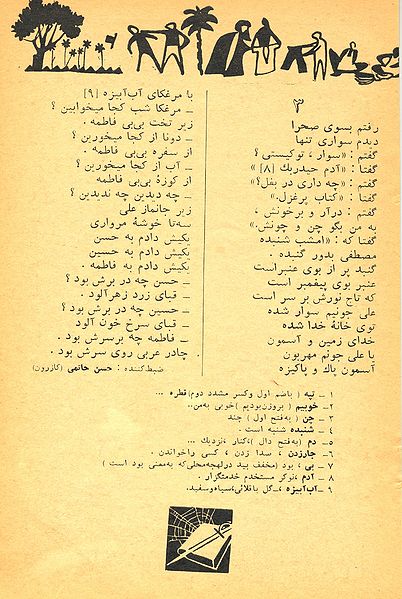 ۳
رفتم بسوی صحرا
دیدم سواری تنها
گفتم : «سوار ، توکیستی ؟
گفتا : «آدم حیدریك [۸] »
گفتم : «چه داری در بغل؟»
گفتا : «کتاب پرغزل.»
گفتم : درآر و برخونش ،
به من بگو چن و چونش.»
گفتا که : «امشب شنبده
مصطفی بدور گنبده .
گنبد پر از بوی عنبراست
عنبر بوی پیغمبر است
که تاج نورش بر سر است
علی جونیم سوار شده
توی خانهٔ خدا شده
خدای زمین و آسمون
یا علی جونم مهربون
آسمون پاك و پاکیزه
با مرغکای آب‌آبیزه [۹]
ـ مرغکا شب کجا میخوابین ؟
زیر تخت بی‌بی فاطمه .
ـ دونا از کجا میخورین ؟
از سفره بی‌بی فاطمه .
ـ آب از کجا میخورین ؟
از کوزهٔ بی‌بی فاطمه .
ـ چه دیدین چه ندیدین ؟
زیر جانماز علی
سه‌تا خوشهٔ مرواری
یکیش دادم به حسن
یکیش دادم به حسین
یکیش دادم به فاطمه .
ـ حسن چه در برش بود ؟
ـ قبای زرد زهرآلود .
ـ حسین چه در برش بود ؟
ـ قبای سرخ خون آلود
ـ فاطمه چه برسرش بود .
ـ چادر عربی روی سرش بود .
ضبط‌کننده : حسن حاتمی (کازرون)
۱ ـ تپه ( باضم اول وکسر مشدد دوم) قطره ...
۲ ـ خوبیم ( بروزن‌بودیم )خوبی به‌من..
۳ ـ چن ( به‌فتح اول ) چند
۴ ـ شنبده شنبه است .
۵ ـ دم (به‌فتح دال )،کنار ،نزدیك ...
۶ ـ جارزدن ، صدا زدن ، کسی راخواندن .
۷ ـ بی ، بود (مخفف بید درلهجه‌محلی‌که به‌معنی بود است )
۸ ـ آدم ،نوکر مستخدم خدمتگزار .
۹ ـ آب‌آبیزه ،ـ گل باقلائی،سیاه‌وسفید.